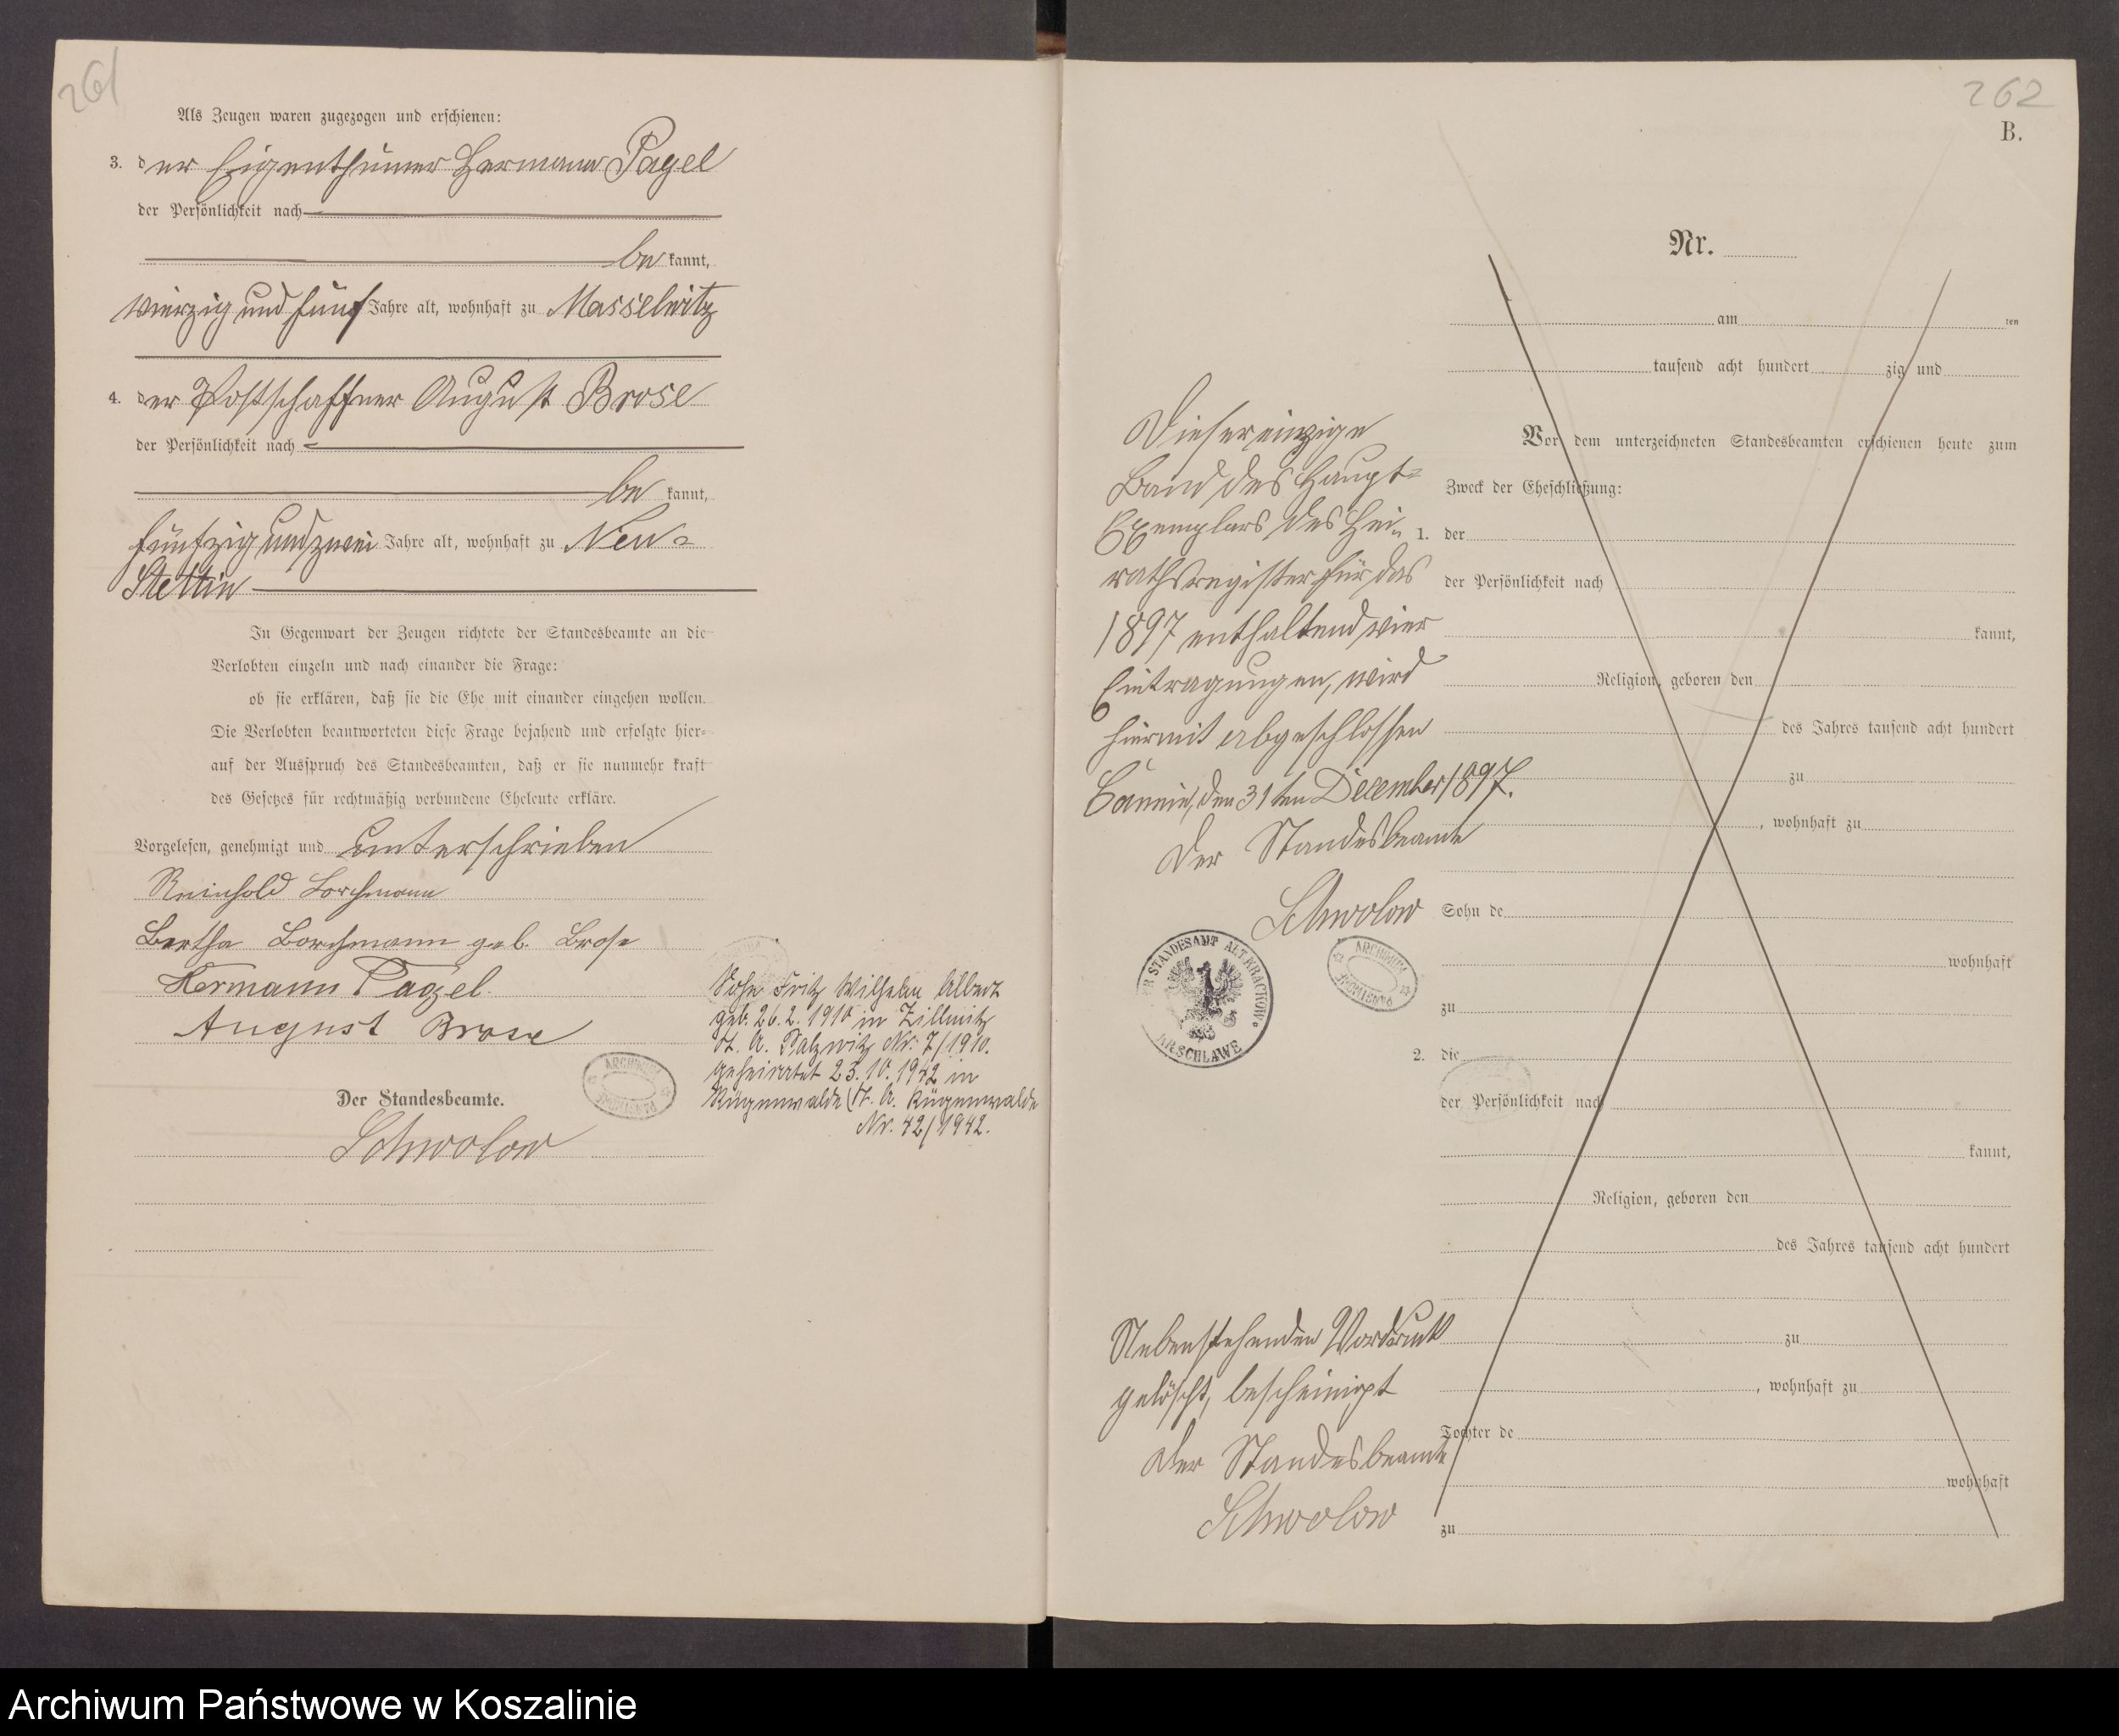 261
Als Zeugen waren zugezogen und erschienen:
3. der Eigenthümer Hermann Pagel
der Persönlichkeit nach
bekannt,
vierzig und fünf Jahre alt, wohnhaft zu Masselwitz
4. der Postschaffner August Brose
der Persönlichkeit nach
bekannt,
fünfzig und zwei Jahre alt, wohnhaft zu Neu-
Stettin
In Gegenwart der Zeugen richtete der Standesbeamte an die
Verlobten einzeln und nach einander die Frage:
ob sie erklären, daß sie die Ehe mit einander eingehen wollen.
Die Verlobten beantworteten diese Frage bejahend und erfolgte hier-
auf der Ausspruch des Standesbeamten, daß er sie nunmehr kraft
des Gesetzes für rechtmäßig verbundene Eheleute erkläre.
Vorgelesen, genehmigt und unterschrieben
Reinhold Borchmann
Bertha Borchmann geb. Brose
Hermann Pagel.
August Brose
Der Standesbeamte.
Schwolow
Sohn Fritz Wilhelm Albert
geb. 26.2.1910 in Zillmitz
St. A. Palzwitz Nr. 7/1910.
geheiratet 23.10.1942 in
Rügenwalde (St. A. Rügenwalde
Nr. 42/1942.
ARCHIWUM PAŃSTWOWE
262
B.
Nr.
am ten
tausend acht hundert zig und
Vor dem unterzeichneten Standesbeamten erschienen heute zum
Zweck der Eheschließung:
1. der
der Persönlichkeit nach
kannt,
Religion, geboren den
des Jahres tausend acht hundert
zu
, wohnhaft zu
Sohn de
wohnhaft
zu
2. die
der Persönlichkeit nach
kannt,
Religion, geboren den
des Jahres tausend acht hundert
zu
, wohnhaft zu
Tochter de
wohnhaft
zu
Dieser einzige
Band des Haupt-
Exemplars des Hei-
rathsregister für das
1897 enthaltend vier
Eintragungen, wird
hiermit abgeschlossen
Cannin, den 31ten December 1897.
Der Standesbeamte
Schwolow
STANDESAMT ALT KRACKOW.
KR SCHLAWE
ARCHIWUM PAŃSTWOWE
Nebenstehenden Vordruck
gelöscht, bescheinigt
Der Standesbeamte
Schwolow
Archiwum Państwowe w Koszalinie